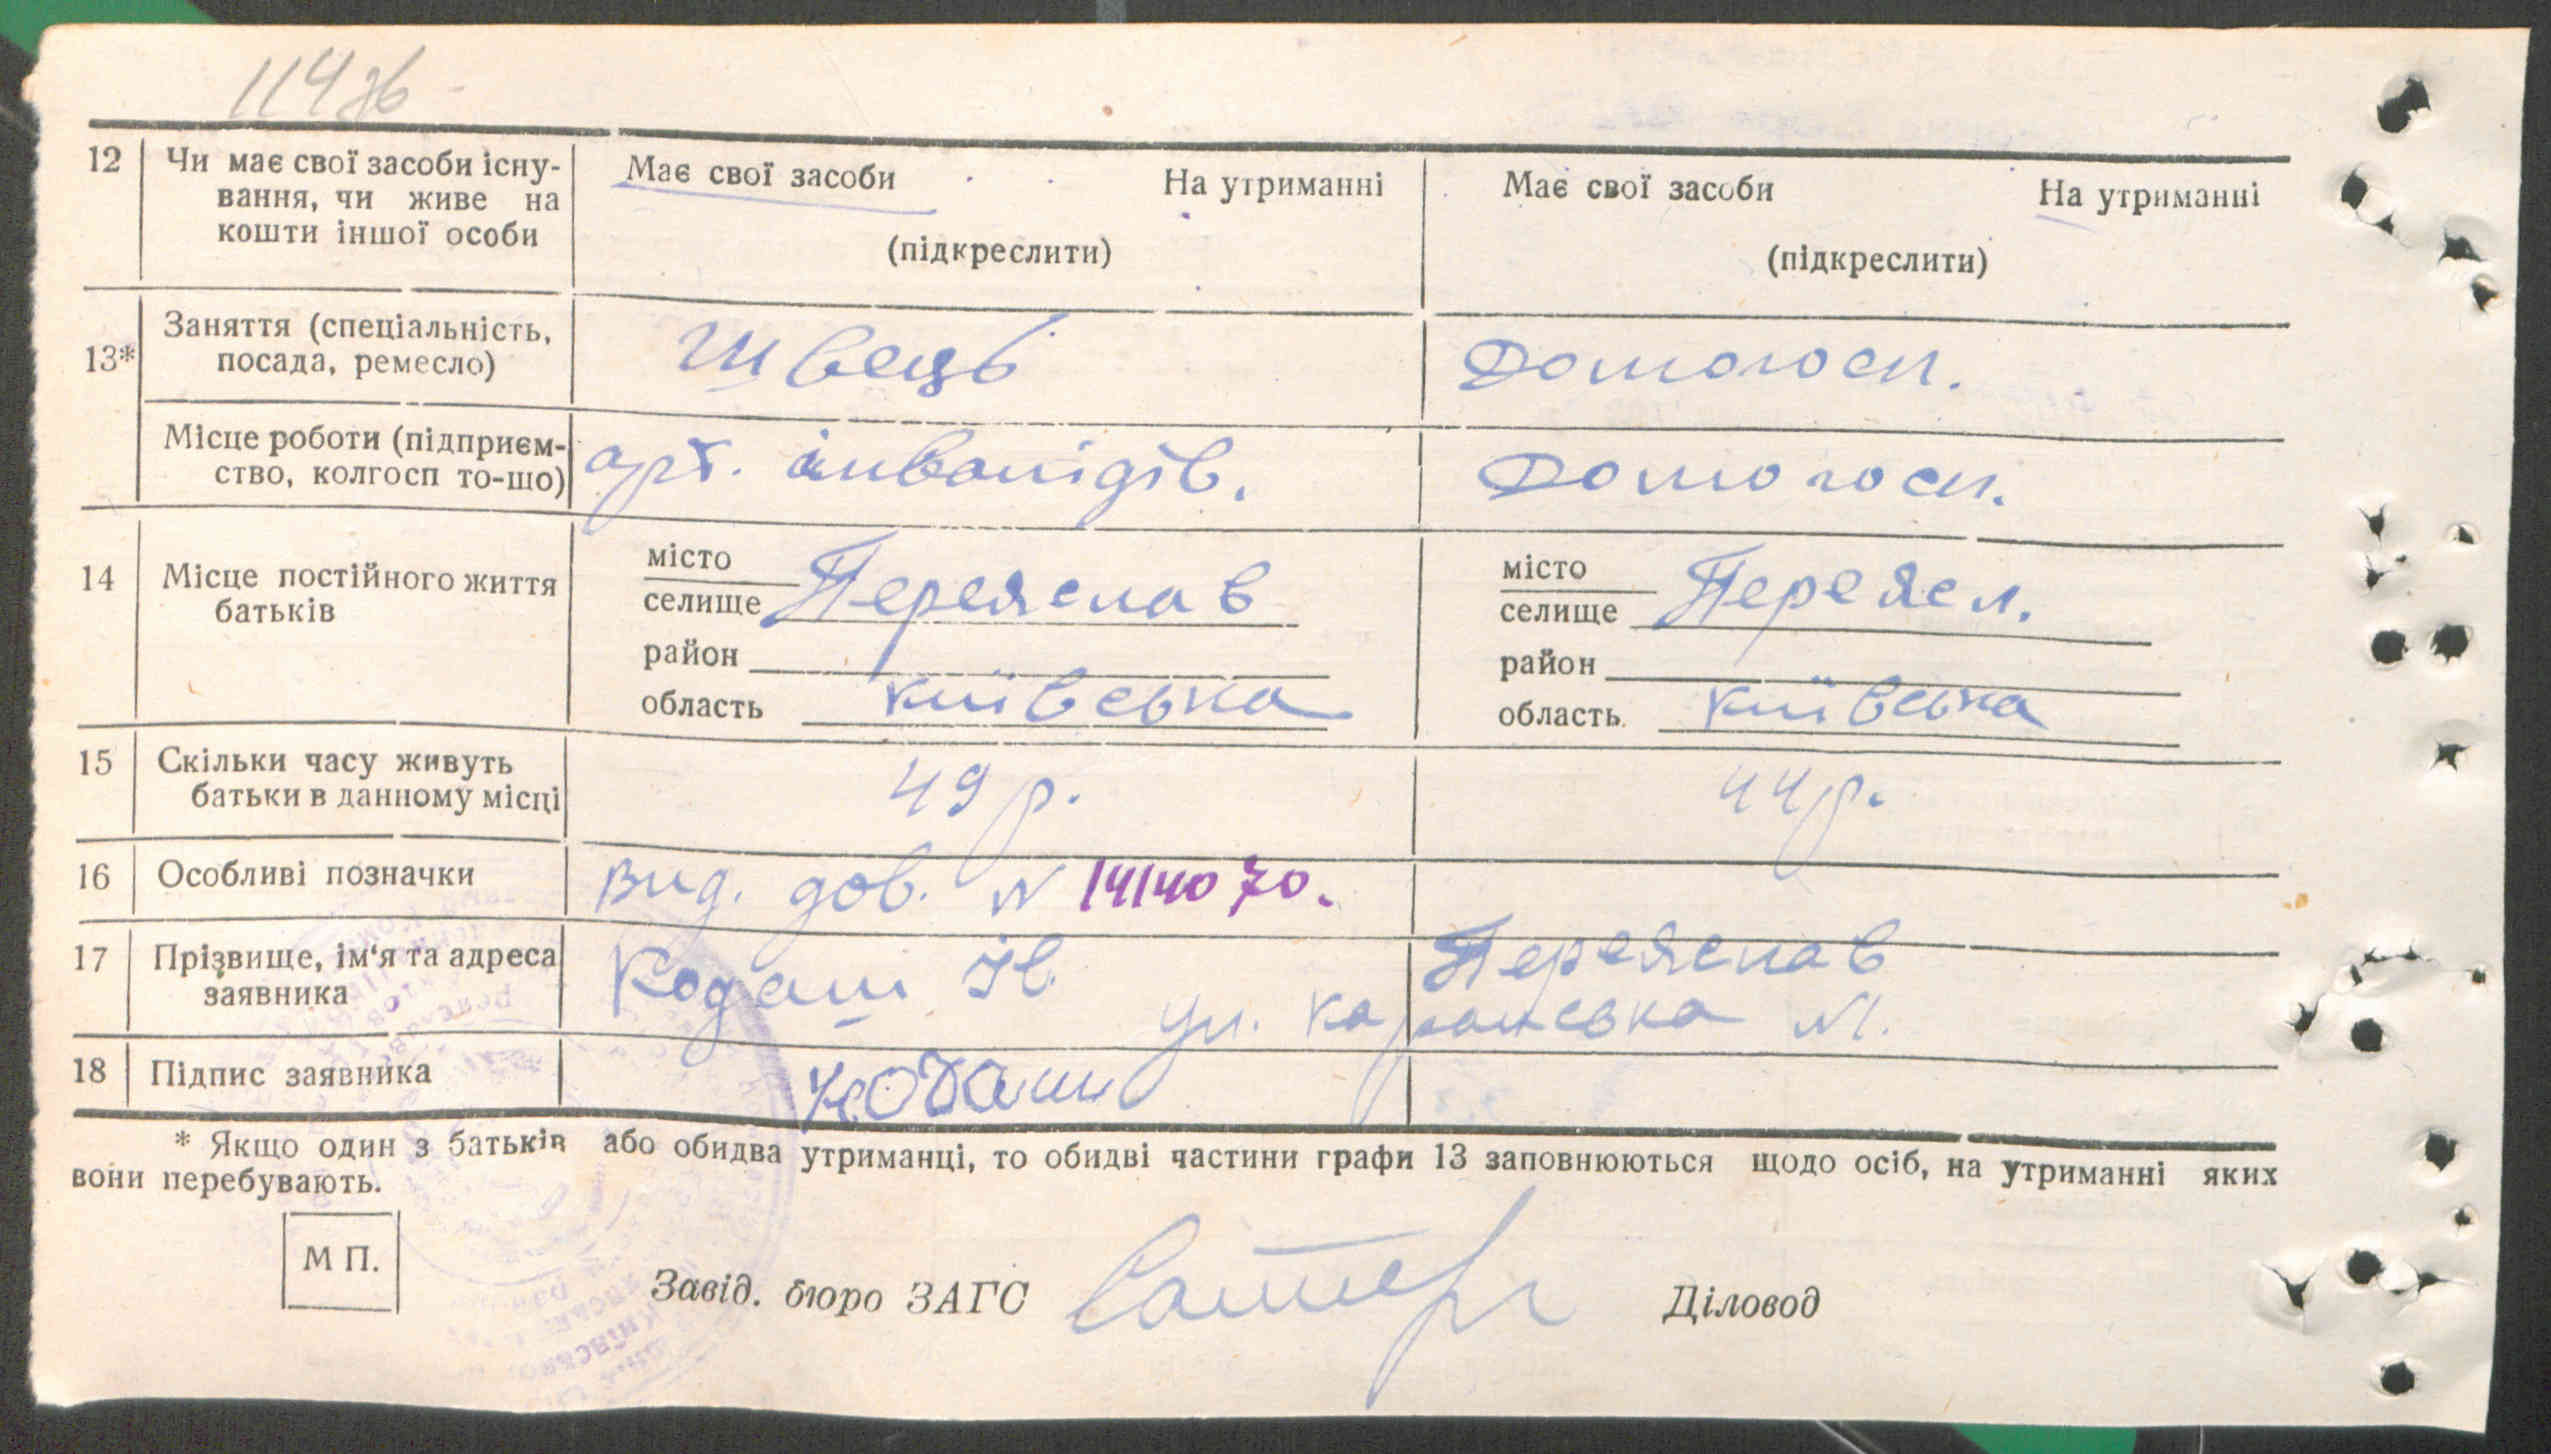 114зв
12 Чи має свої засоби існу- Має свої засоби На утриманні Має свої засоби На утриманні
вання, чи живе на
кошти іншої особи (підкреслити) (підкреслити)
13* Заняття (спеціальність, Швець Домогосп.
посада, ремесло)
Місце роботи (підприєм- арт. інвалідів. Домогосп.
ство, колгосп то-шо)
14 Місце постійного життя місто Переяслав місто Переясл.
батьків селище селище
район район
область київська область київська
15 Скільки часу живуть 49 р. 44 р.
батьки в данному місці
16 Особливі позначки Вид. дов. N 1414070.
17 Прізвище, ім'я та адреса Кодаш Ів. Переяслав
заявника ул. Каранська
18 Підпис заявника Кодаш
* Якщо один з батьків або обидва утриманці, то обидві частини графи 13 заповнюються щодо осіб, на утриманні яких
вони перебувають.
М П.
Завід. бюро ЗАГС Діловод